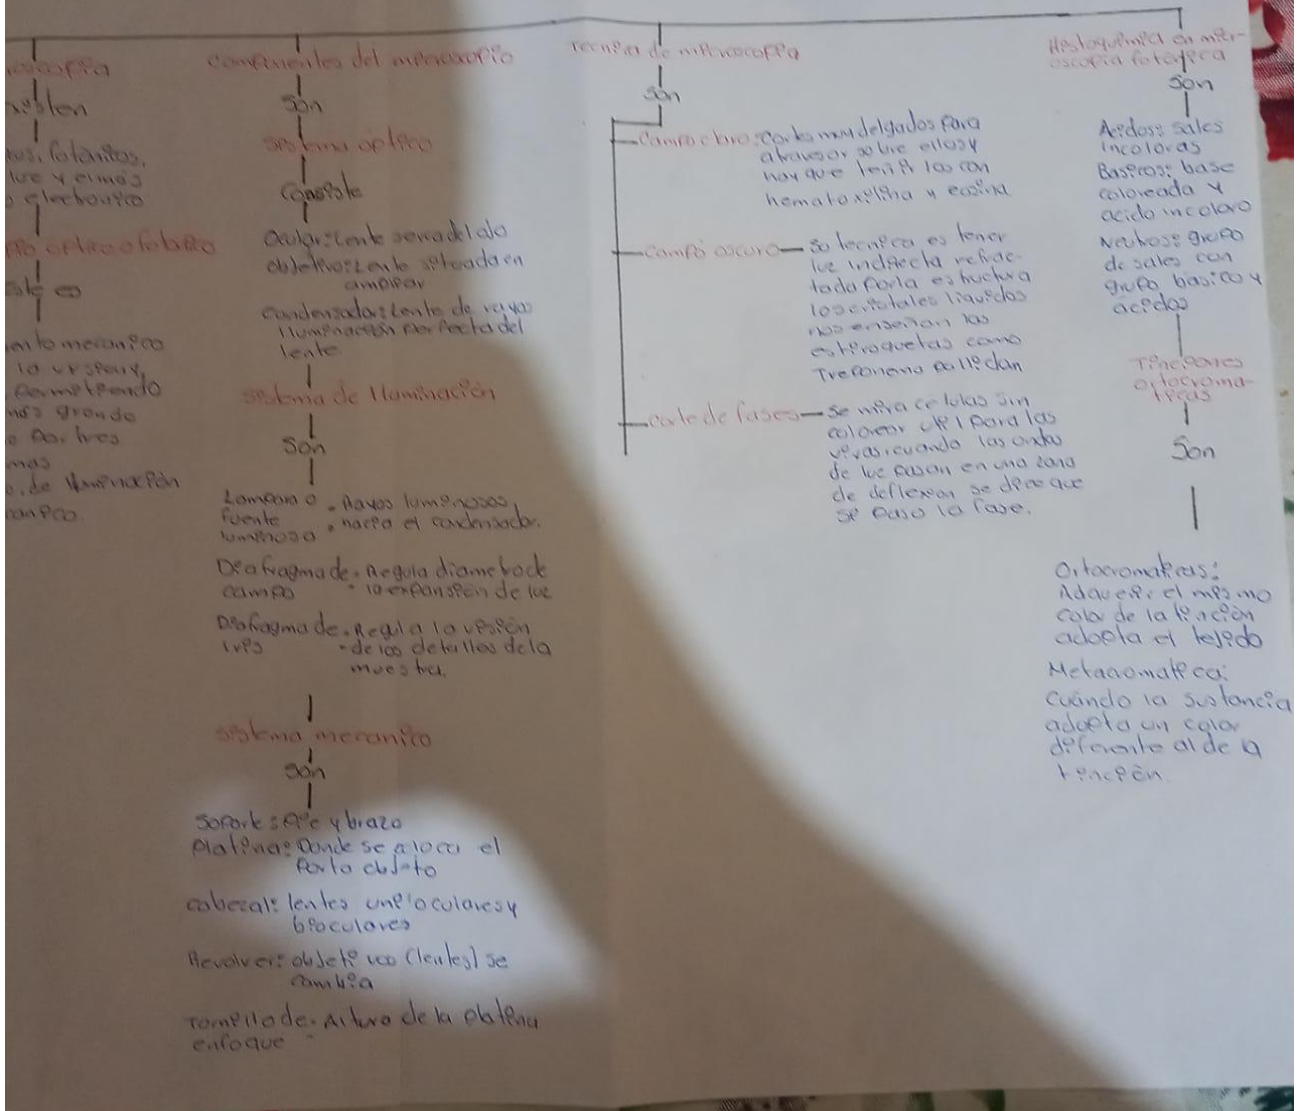 existen
luz y el más
electronico
ento mecanico
permitiendo
más grande
o por tres
o, de iluminación
componentes del microscopio
son
sistema optico
consiste
Ocular: Lente cerca del ojo
objetivo: Lente situada en
ampliar
condensador: Lente de rayos
iluminación perfecta del
lente
sistema de iluminación
son
Lampara o • Rayos luminosos
fuente • hacia el condensador.
luminosa •
Diafragma de • Regula diametro de
campo - la expansión de luz
Diafragma de • Regula la visión
iris - de los detalles de la
muestra.
sistema mecanico
son
soporte: Pie y brazo
platina: Donde se aloca el
porta objeto
cabezal: lentes uniloculares y
bioculares
Revolver: objetivos (lentes) se
cambia
Tornillo de - Altura de la platina
enfoque -
Tecnica de microscopia
son
Campo claro: cortes muy delgados para
atravesar sobre ellos y
hay que teñir las con
hematoxilina y eosina
campo oscuro — Su tecnica es tener
luz indirecta refrac-
tada por la estructura
los cristales liquidos
nos enseñan las
como
Treponema pallidan
corte de fases — Se mira celulas sin
colorear util para las
vivas, cuando las ondas
de luz pasan en una zona
de deflexion se dice que
se paso la fase.
Histoquimica en micr-
oscopia fotonica
son
Acidos: sales
incoloras
Basicos: base
coloreada y
acido incoloro
Neutros: grupo
de sales con
grupo basico y
ácidos
Tinciones
ortocroma-
ticas
Son
Ortocromaticas:
Adquirir el mismo
color de la tinción
adopta el tejido
Metacromatica:
Cuándo la sustancia
adopta un color
diferente al de la
tinción.